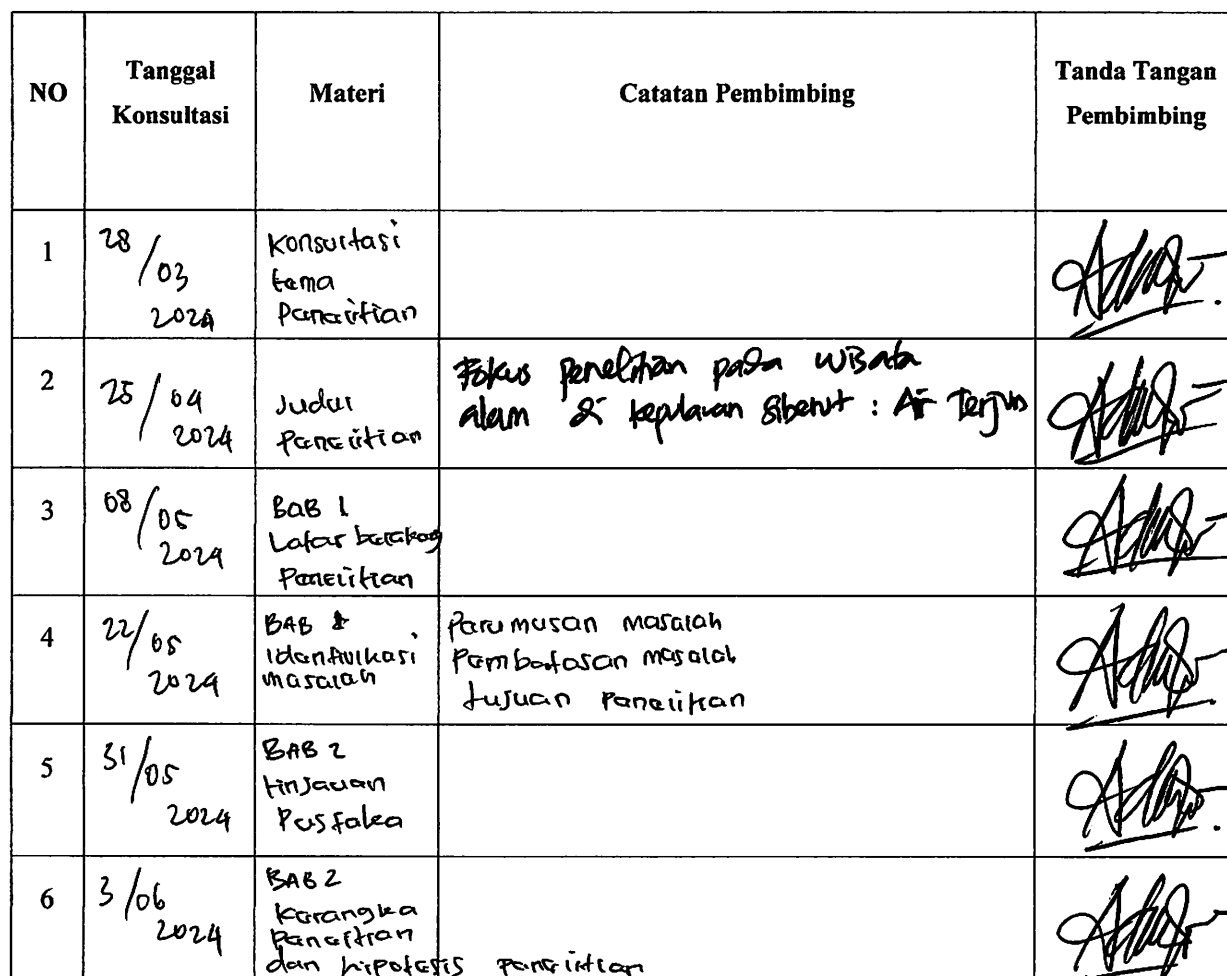 NO Tanggal Konsultasi Materi Catatan Pembimbing Tanda Tangan Pembimbing
1 28/03 2024 Konsultasi
tema
Penelitian
2 25/04 2024 Judul
Penelitian
Fokus penelitian pada wisata
alam di kepulauan Siberut : Air Terjun
3 08/05 2024 BAB 1
Latar belakang
Penelitian
4 22/05 2024 BAB 1
Identifikasi
masalah
Perumusan masalah
Pembatasan masalah
tujuan Penelitian
5 31/05 2024 BAB 2
tinjauan
Pustaka
6 3/06 2024 BAB 2
Kerangka
Penelitian
dan hipotesis penelitian